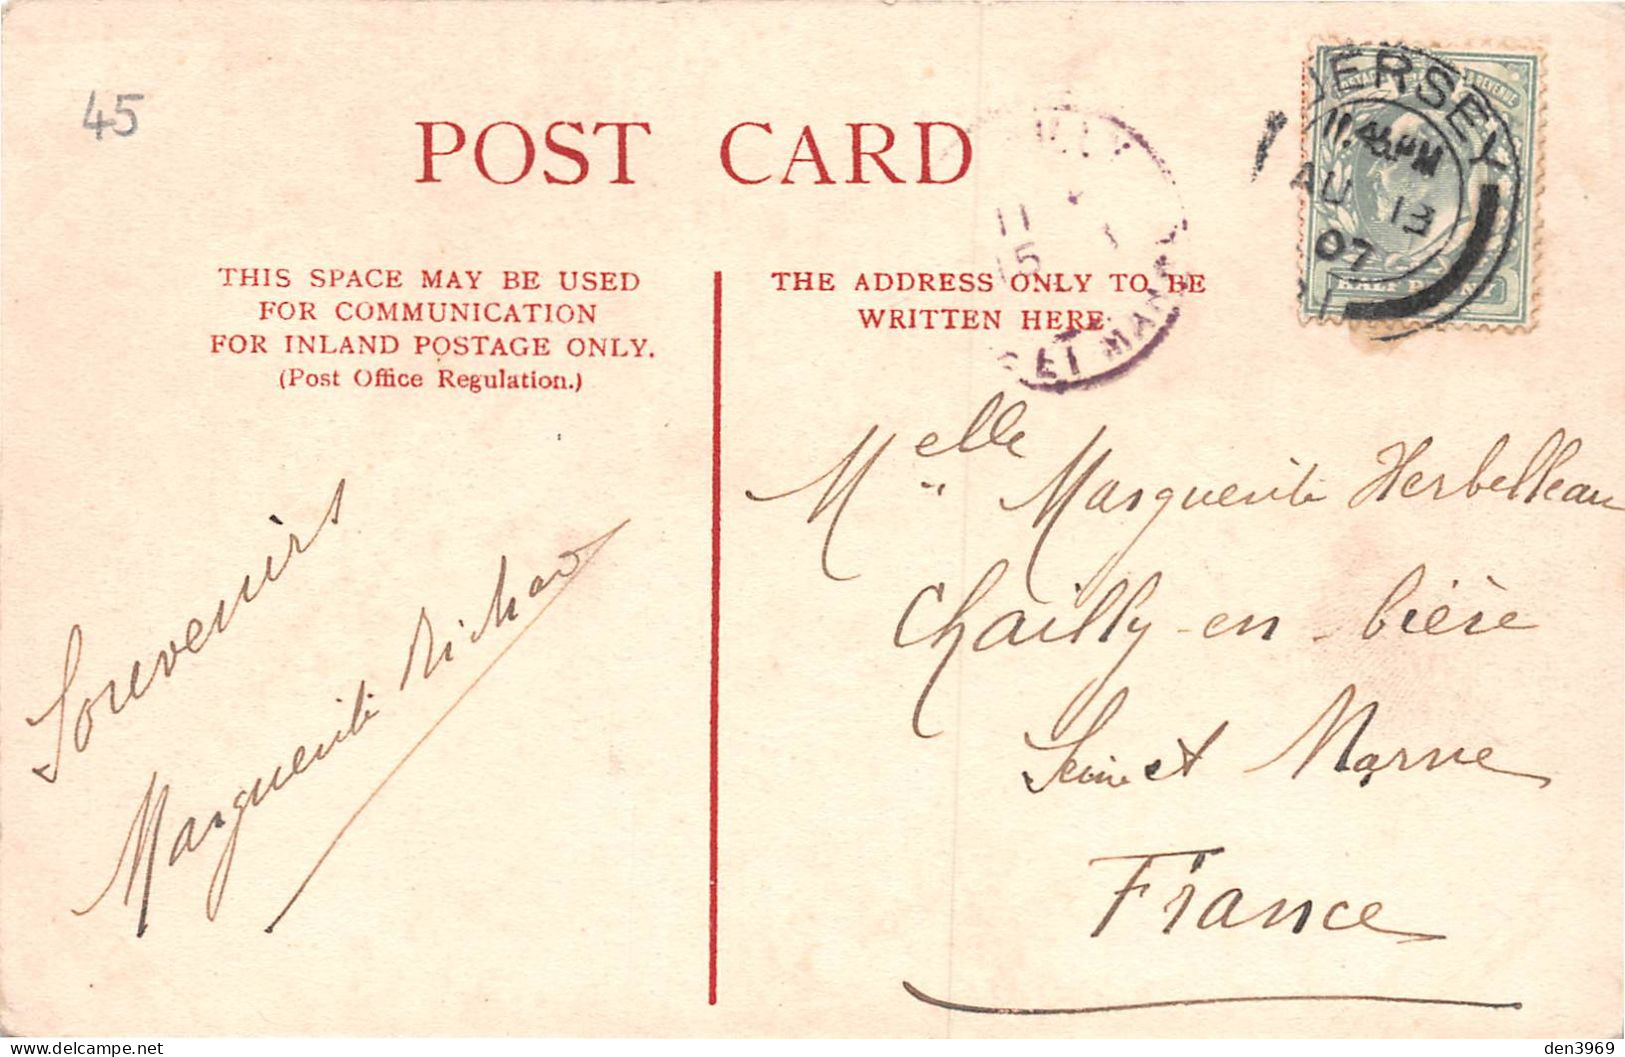 45
POST CARD
THIS SPACE MAY BE USED
FOR COMMUNICATION
FOR INLAND POSTAGE ONLY.
(Post Office Regulation.)
THE ADDRESS ONLY TO BE
WRITTEN HERE
JERSEY
11.45PM
AU 13
07
HALF PENNY
11
15
ET MARNE
Souvenirs
Marguerite Richard
Melle Marguerite Herbelleau
Chailly-en-bière
Seine et Marne
France
den3969